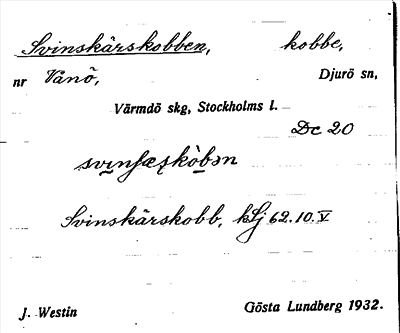 Svinskärskobben, kobbe,
nr Vanö, Djurö sn,
Värmdö skg, Stockholms l.
Dc 20
svinʃæʂkòbən
Svinskärskobb, kSj 62.10.V
J. Westin Gösta Lundberg 1932.